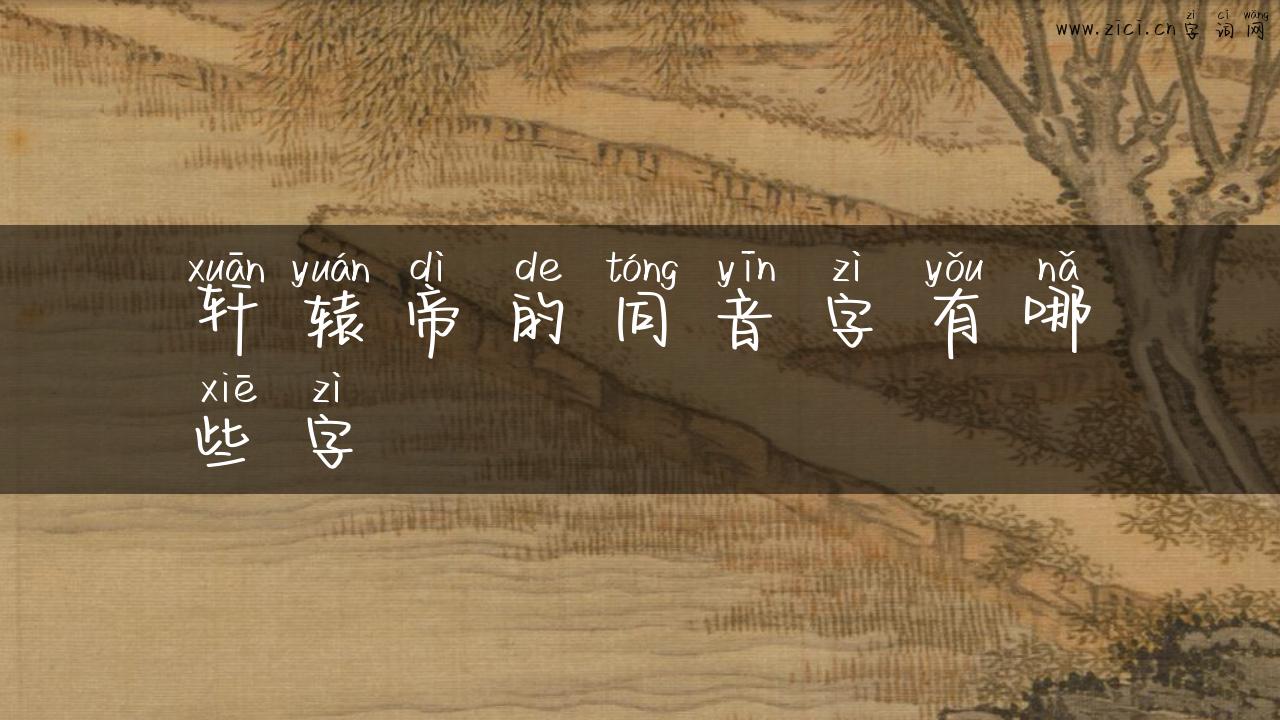 zì cí wǎng
www.zici.cn 字 词 网
xuān yuán dì de tóng yīn zì yǒu nǎ
轩 辕 帝 的 同 音 字 有 哪
xiē zì
些 字